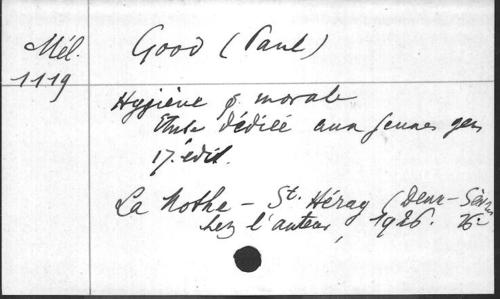 Mél.
1119
Good (Paul)
Hygiène & morale
Etude dédiée aux jeunes gens
17.e édit.
La Mothe - St. Héray (Deux-Sèvres
chez l'auteur, 1926. 16º